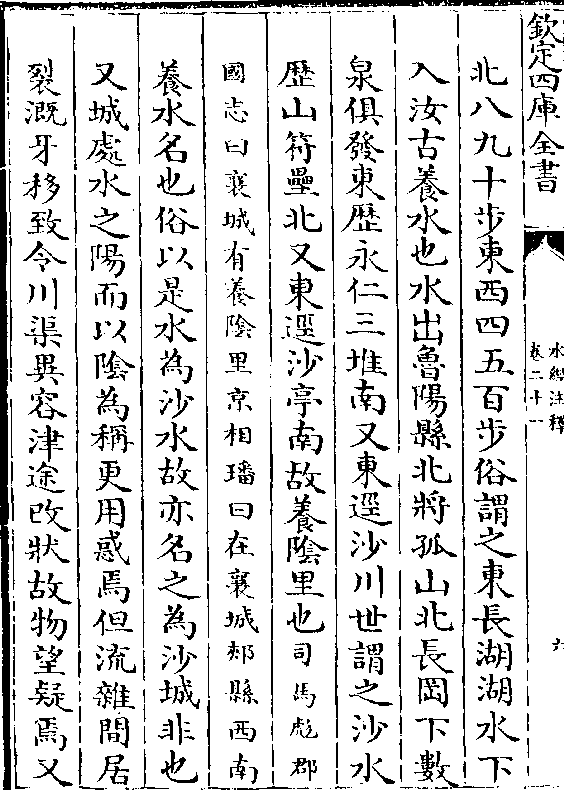 欽定四庫全書
水經注釋
卷二十一
六
北八九十步東西四五百步俗謂之東長湖湖水下
入汝古養水也水出魯陽縣北將孤山北長岡下數
泉俱發東歷永仁三堆南又東逕沙川世謂之沙水
歴山符壘北又東逕沙亭南故養隂里也司馬彪郡
國志曰襄城有養隂里京相璠曰在襄城郟縣西南
養水名也俗以是水為沙水故亦名之為沙城非也
又城處水之陽而以隂為稱更用惑焉但流雜間居
裂溉牙移致令川渠異容津途改狀故物望疑焉又